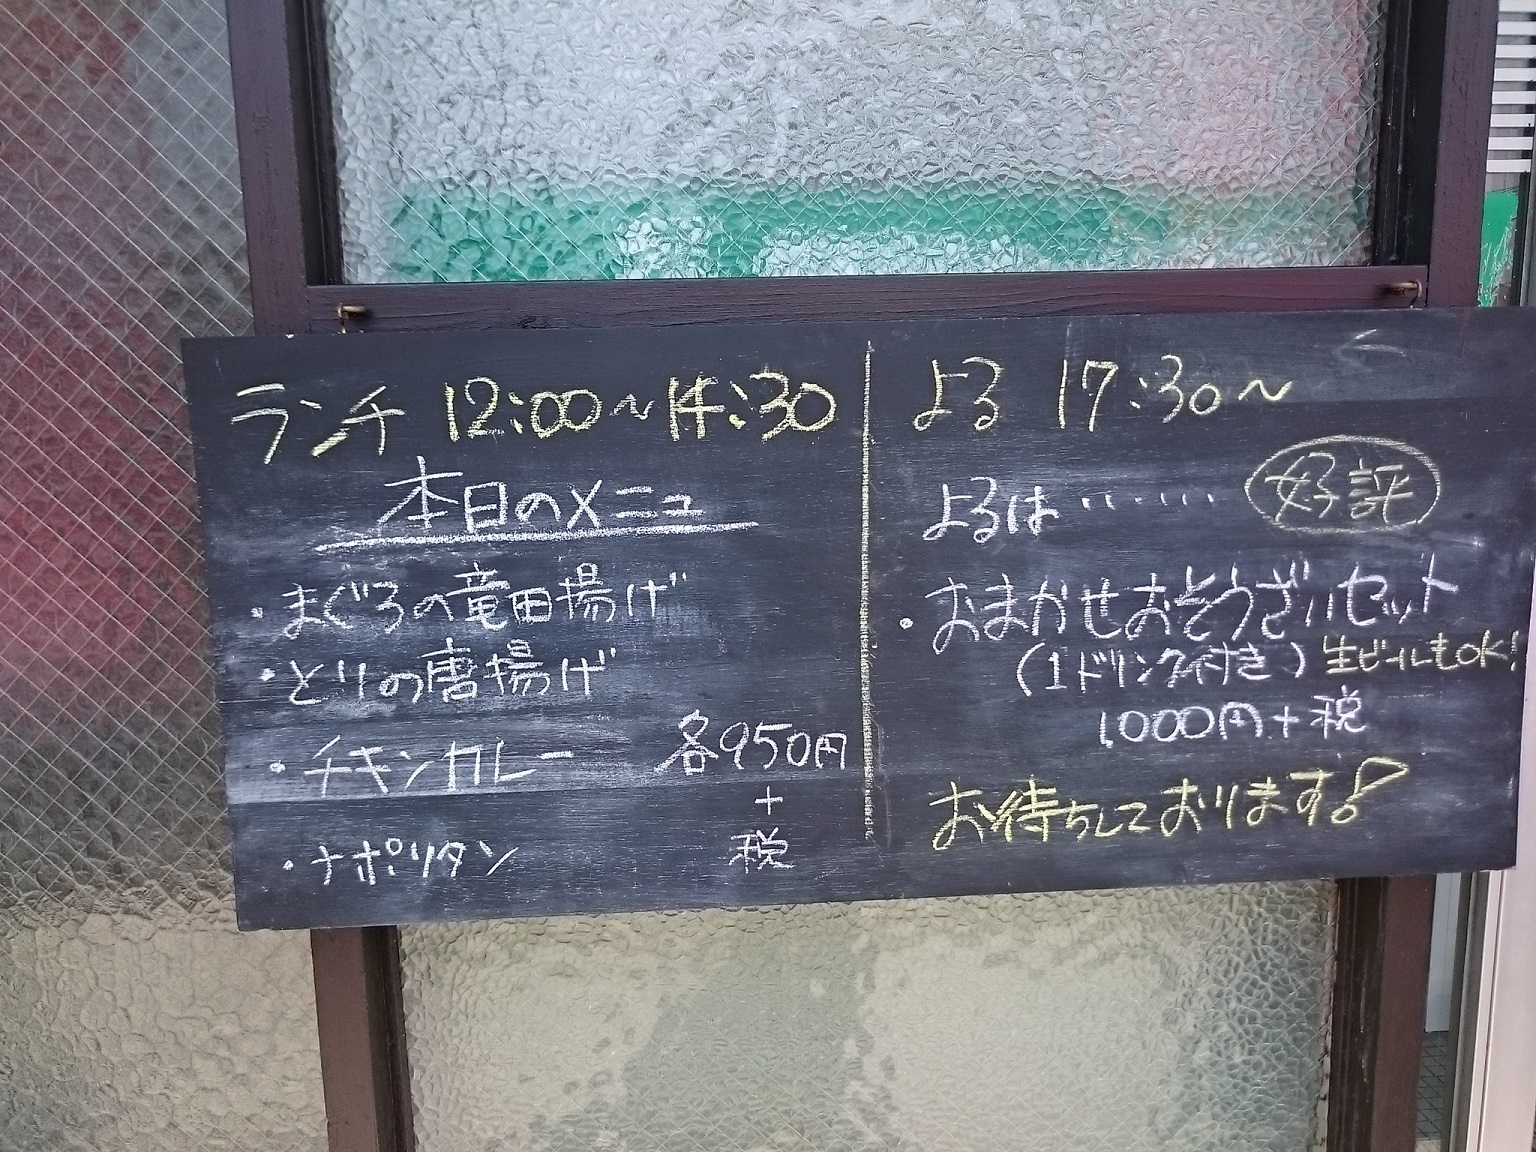 ランチ 12:00〜14:30
本日のメニュー
・まぐろの竜田揚げ
・とりの唐揚げ
・チキンカレー 各950円
+
・ナポリタン 税
よる 17:30〜
よるは‥‥‥‥ 好評
・おまかせおそうざいセット
(1ドリンク付き) 生ビールもOK!
1,000円+税
お待ちしております!